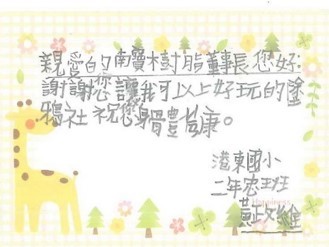 親愛的南寶樹脂董事長您好:
謝謝您讓我可以上好玩的塗
鴉社祝您身體豊康。
港東國小
二年忠班
黃